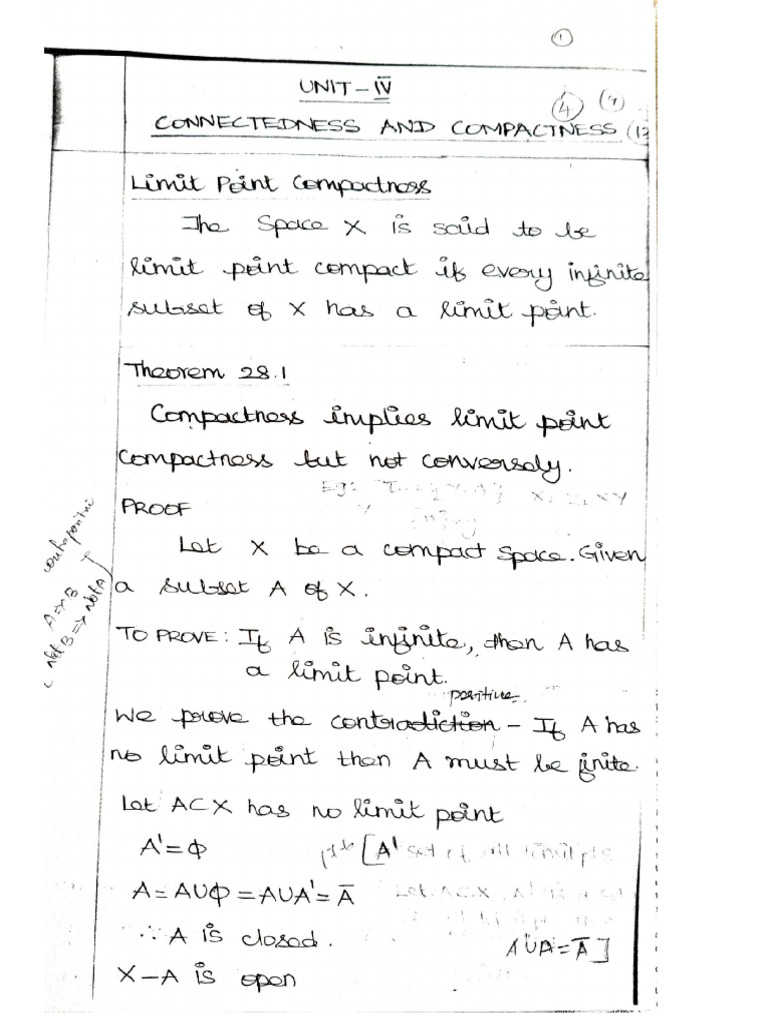 1
UNIT - IV
4 (9)
CONNECTEDNESS AND COMPACTNESS (12
Limit Point Compactness
The Space X is said to be
limit point compact if every infinite
subset of X has a limit point.
Theorem 28.1
Compactness implies limit point
compactness but not conversely.
Eg:
PROOF
Let X be a compact space. Given
a subset A of X.
contrapositive
A=>B
not B => not A
TO PROVE: If A is infinite, then A has
a limit point.
positive.
We prove the contradiction - If A has
no limit point then A must be finite.
Let A⊂X has no limit point
A' = Φ
[A' set of all limit pts
A = A∪Φ = A∪A' = Ā
Let A⊂X,
∴ A is closed.
A∪A = Ā]
X-A is open